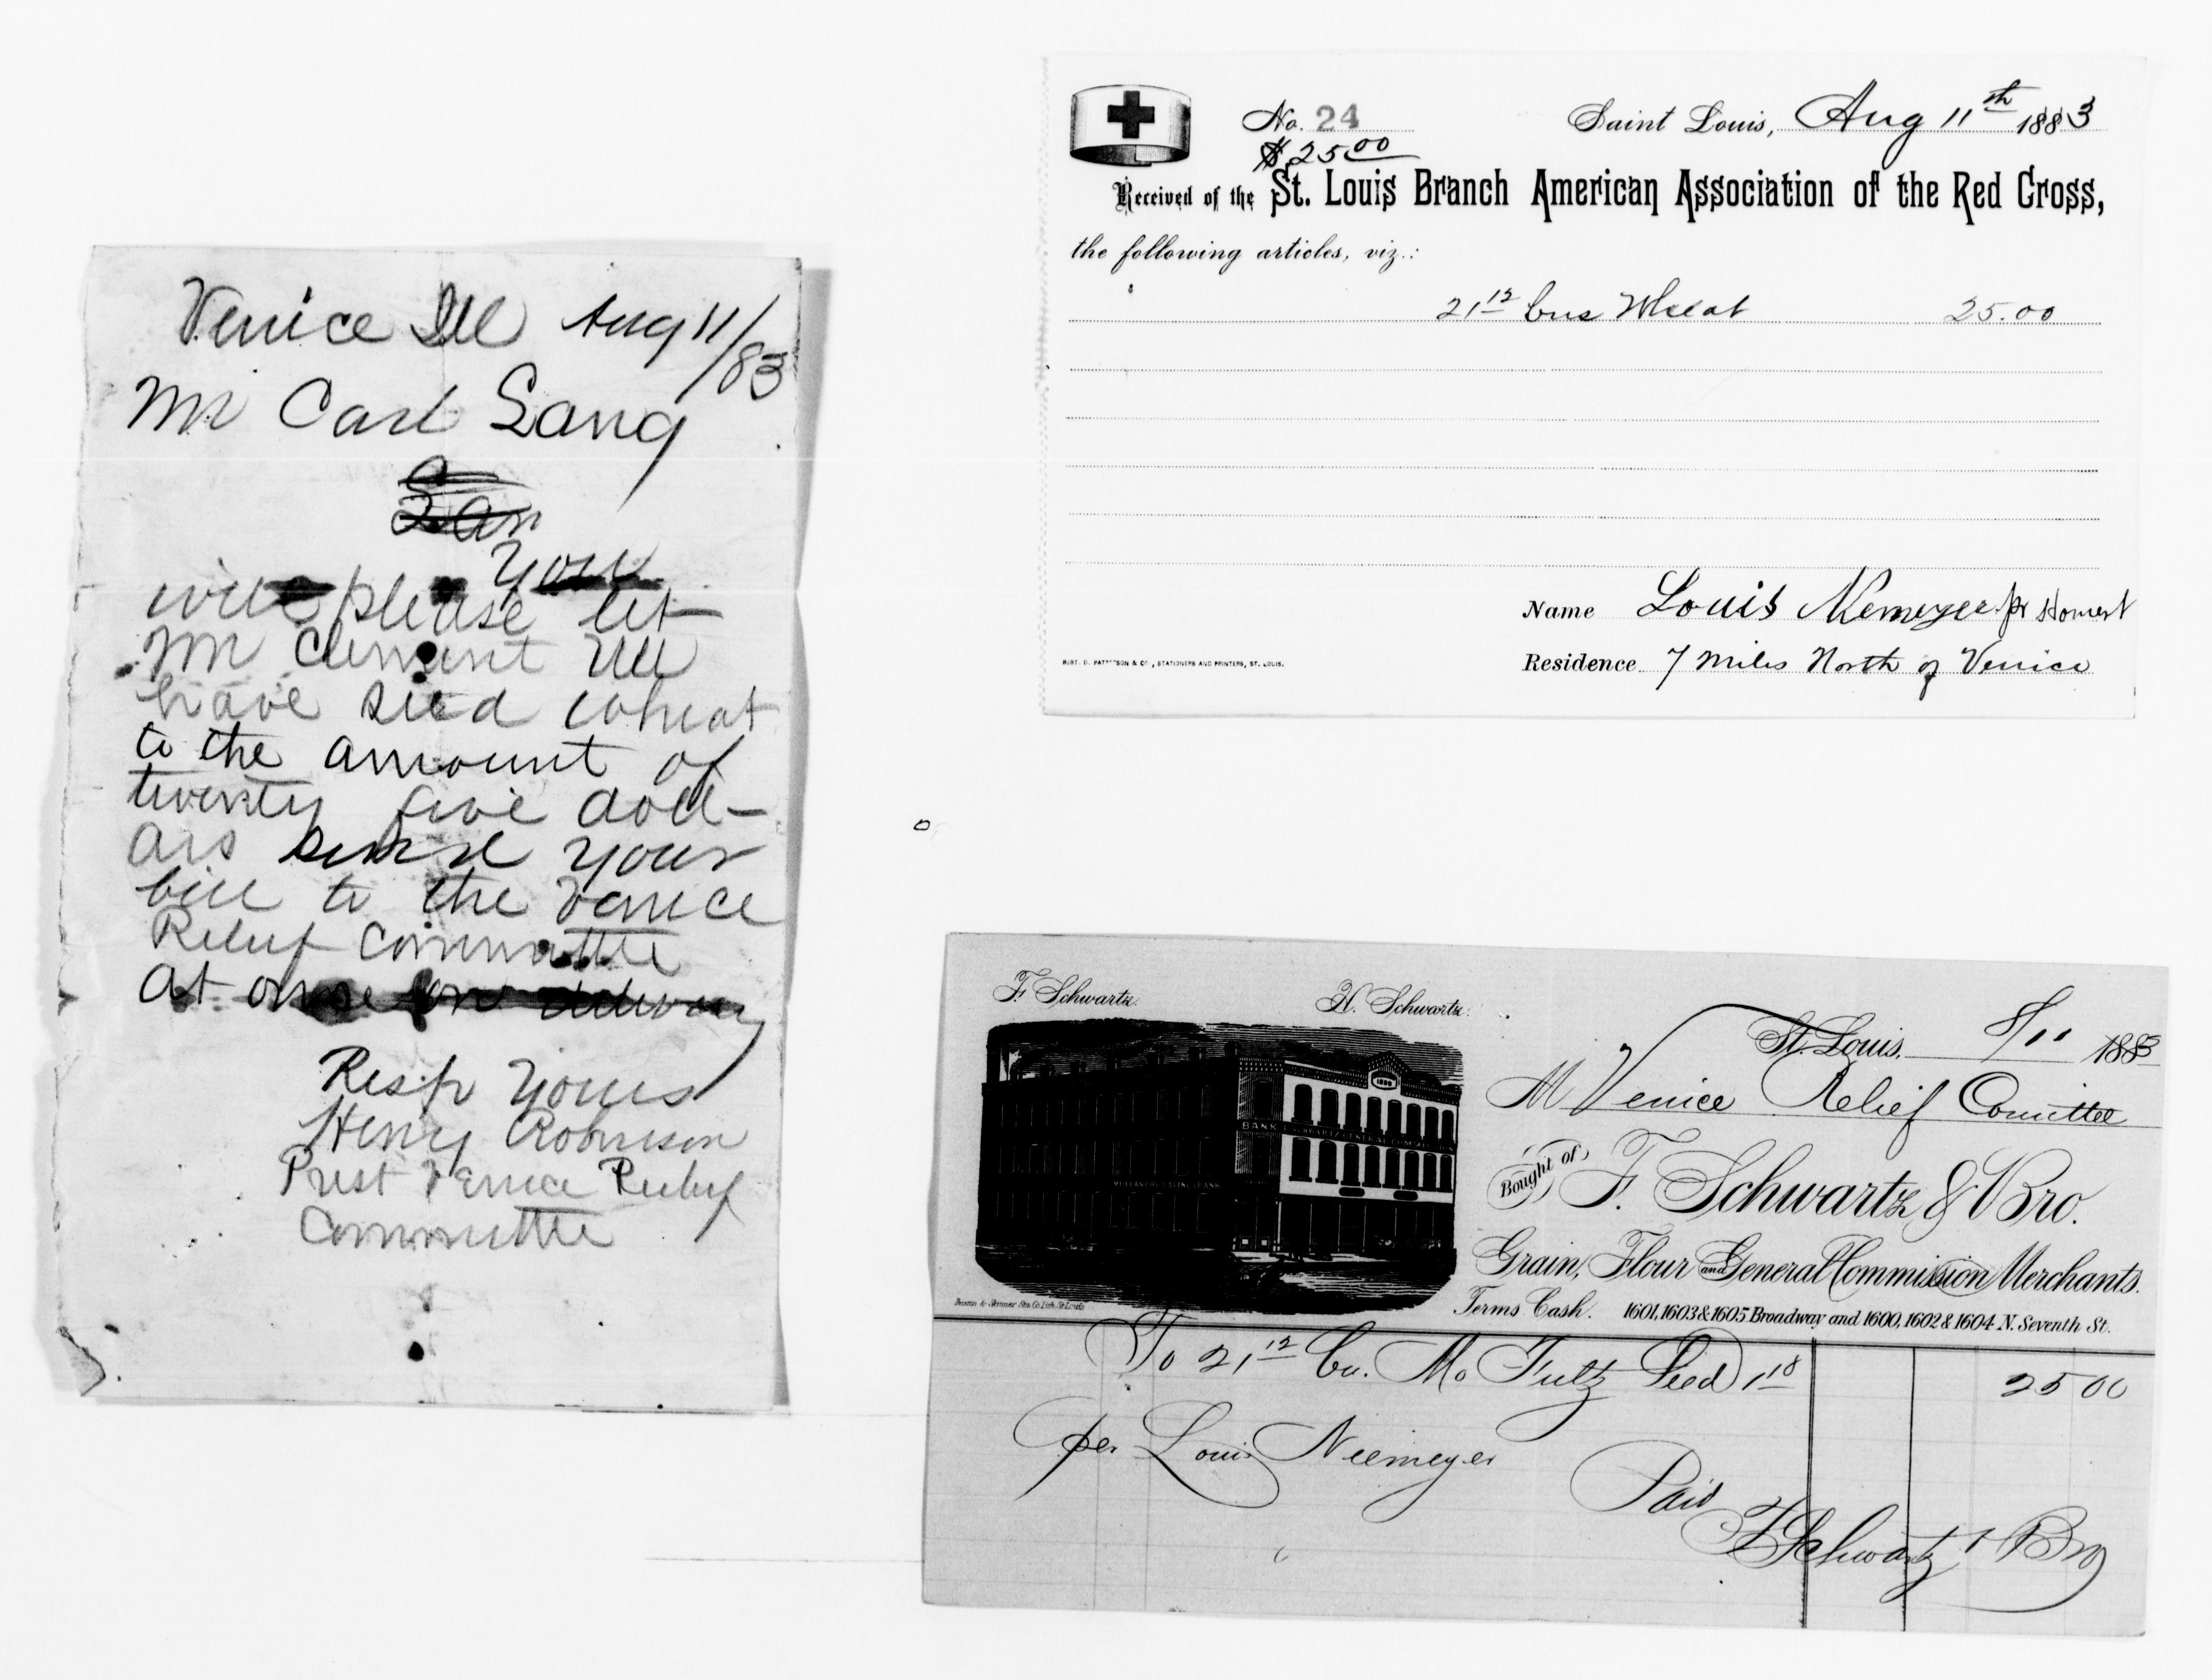 Venice Ill Aug 11/83
Mr Carl Lang
Lan
You
will please let
Mr Clement Ill
have seed wheat
to the amount of
twenty five doll-
ars send your
bill to the Venice
Relief Committe
at once on delivery
Resp Yours
Henry Robinson
Prest Venice Relief
Committe
No. 24
$25.00
Saint Louis, Aug 11th 1883
Received of the St. Louis Branch American Association of the Red Cross,
the following articles, viz.:
21 12 bus Wheat 25.00
Name Louis Niemeyer pr
Residence 7 Miles North of Venice
STATIONERS AND PRINTERS, ST. LOUIS.
F. Schwartz. H. Schwartz.
St. Louis, 8/11 1883
M Venice Relief Comittee
Bought of F. Schwartz & Bro.
Grain, Flour and General Commission Merchants.
Terms Cash. 1601, 1603 & 1605 Broadway and 1600, 1602 & 1604 N. Seventh St.
1880
BANK
To 21 12 bu. Mo Fultz Seed 1 18 25 00
per Louis Niemeyer
Paid
F Schwartz & Bro